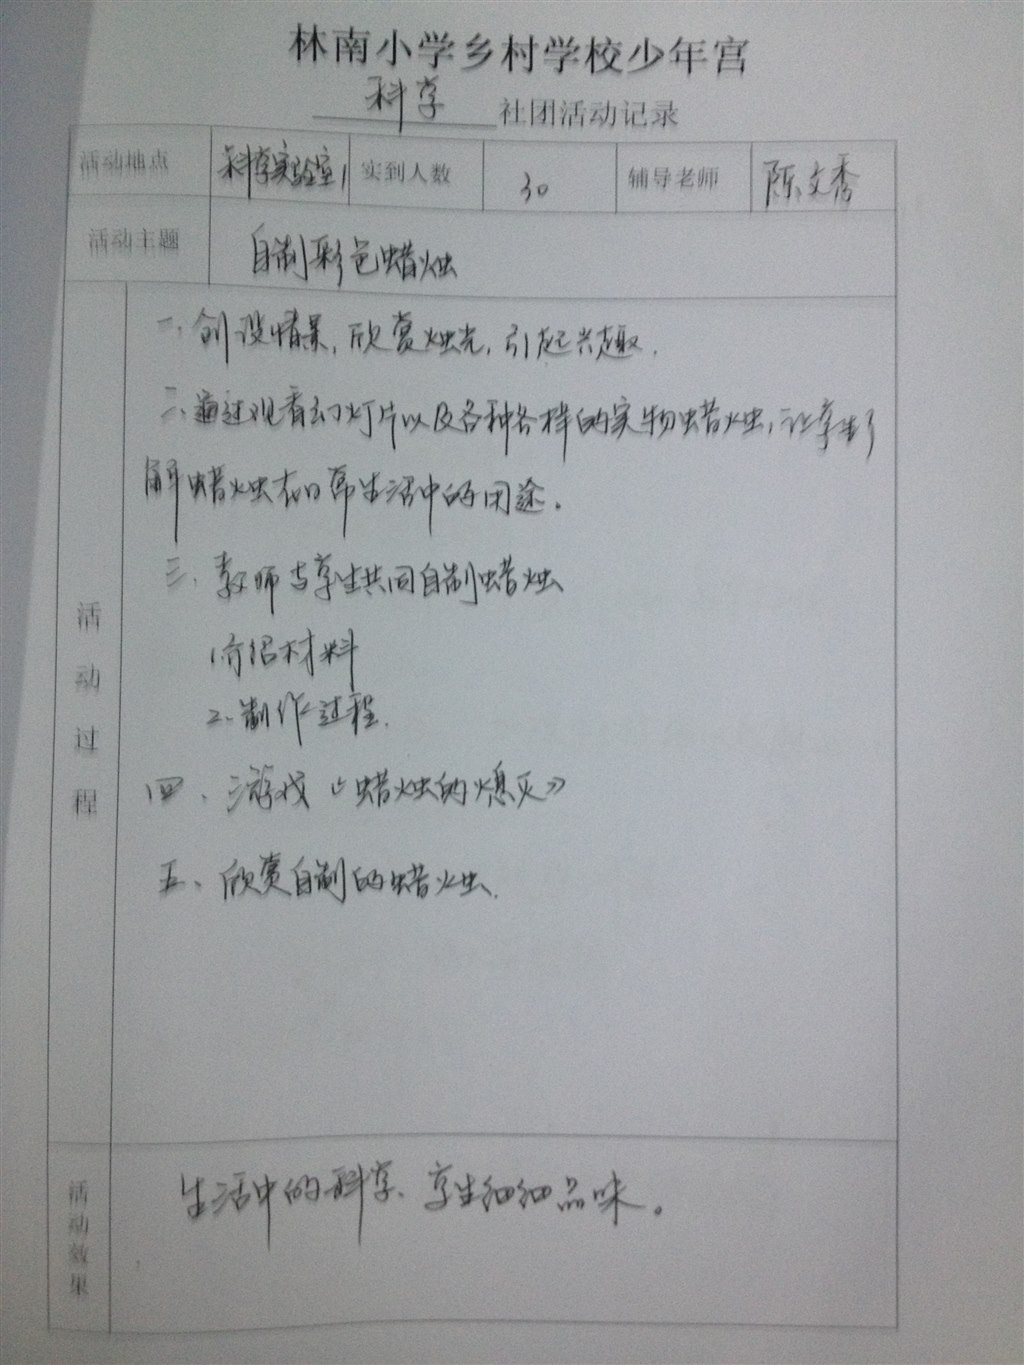 林南小学乡村学校少年宫
科学 社团活动记录
活动地点 科学实验室1 实到人数 30 辅导老师 陈文秀
活动主题 自制彩色蜡烛
活动过程
一、创设情景,欣赏烛光,引起兴趣.
二、通过观看幻灯片以及各种各样的实物蜡烛,让学生了
解蜡烛在日常生活中的用途。
三、教师与学生共同自制蜡烛
1.介绍材料
2.制作过程.
四、游戏《蜡烛的熄灭》
五、欣赏自制的蜡烛.
活动效果
生活中的科学、学生细细品味。